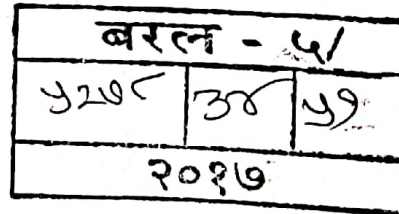 बरल - ५/
५२७८ ३४ ५९
२०१७